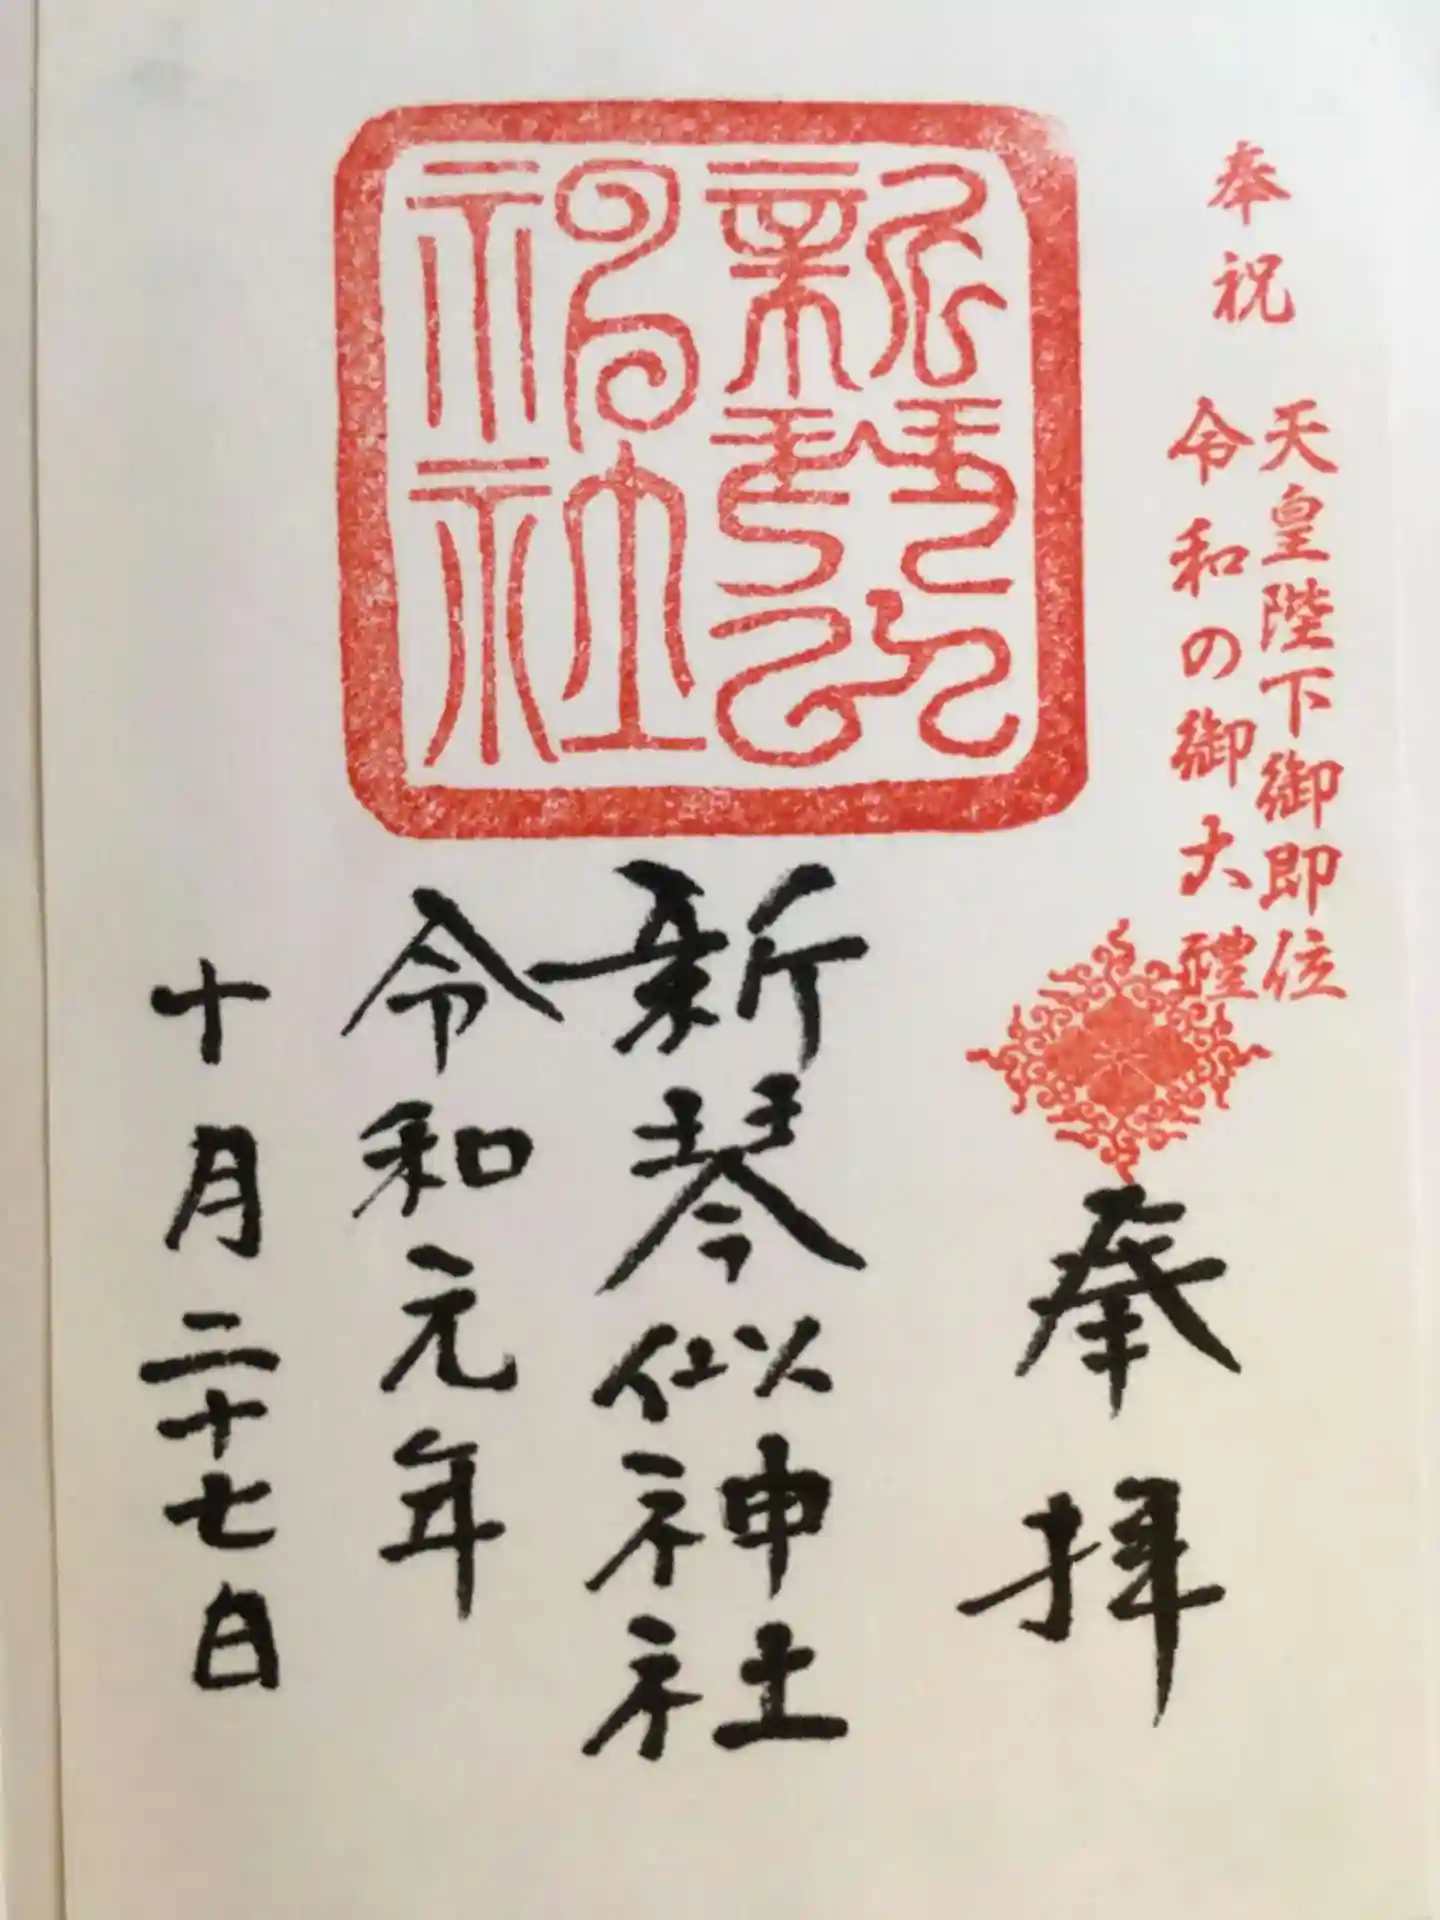 奉祝
天皇陛下御即位
令和の御大禮
奉拝
新琴似神社
新琴似神社
令和元年
十月二十七日